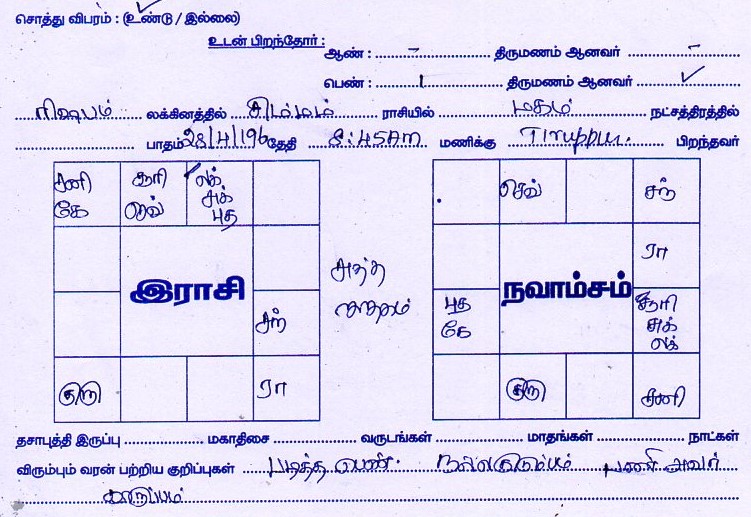 சொத்து விபரம் : (உண்டு / இல்லை)
உடன் பிறந்தோர் :
ஆண் : – திருமணம் ஆனவர் –
பெண் : 1 திருமணம் ஆனவர் ✓
ரிஷபம் லக்கினத்தில் சிம்மம் ராசியில் மகம் நட்சத்திரத்தில்
பாதம் 28/4/196 தேதி 8:45AM மணிக்கு Tiruppur. பிறந்தவர்
சனி சூரி லக் செவ் சந்
கே செவ் சுக் ரா
புத
இராசி நவாம்சம்
சந் புத சூரி
கே சுக்
லக்
குரு ரா குரு சனி
தசாபுத்தி இருப்பு மகாதிசை வருடங்கள் மாதங்கள் நாட்கள்
விரும்பும் வரன் பற்றிய குறிப்புகள் படித்த பெண். நல்லகுடும்பம் அவர்